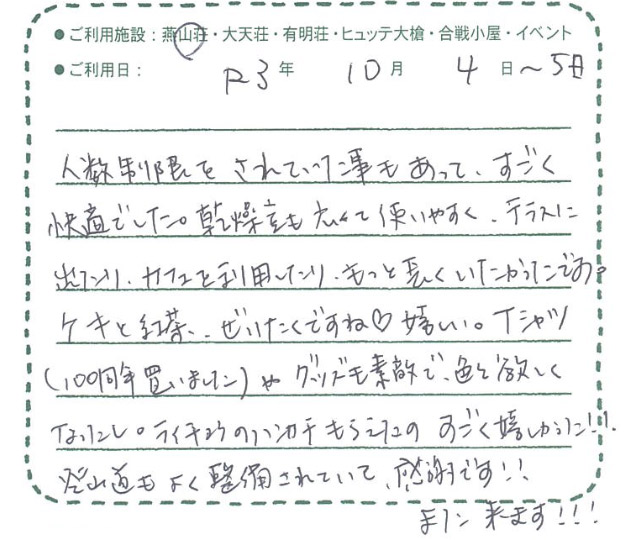 ●ご利用施設：燕山荘・大天荘・有明荘・ヒュッテ大槍・合戦小屋・イベント
●ご利用日： R3年 10月 4日～5日
人数制限をされていた事もあって、すごく
快適でした。乾燥室も広くて使いやすく、テラスに
出たり、カフェを利用したり、もっと長くいたかったです。
ケーキと紅茶、ぜいたくですね♡嬉しい。Tシャツ
(100周年買いました)やグッズも素敵で、色々欲しく
なったし。ライチョウのハンカチもらえたの すごく嬉しかった!!!
登山道もよく整備されていて、感謝です!!
また来ます!!!